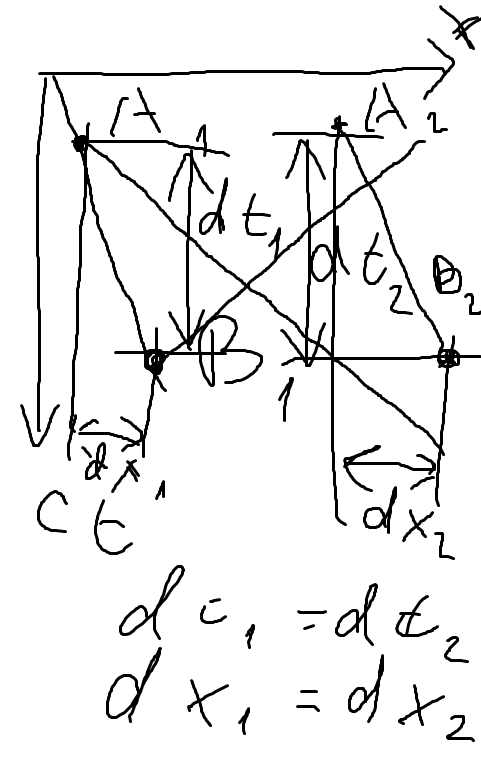 x
A 1
A 2
d t 1
d t 2
B 1
B 2
d x 1
d x 2
c t
d t 1 = d t 2
d x 1 = d x 2